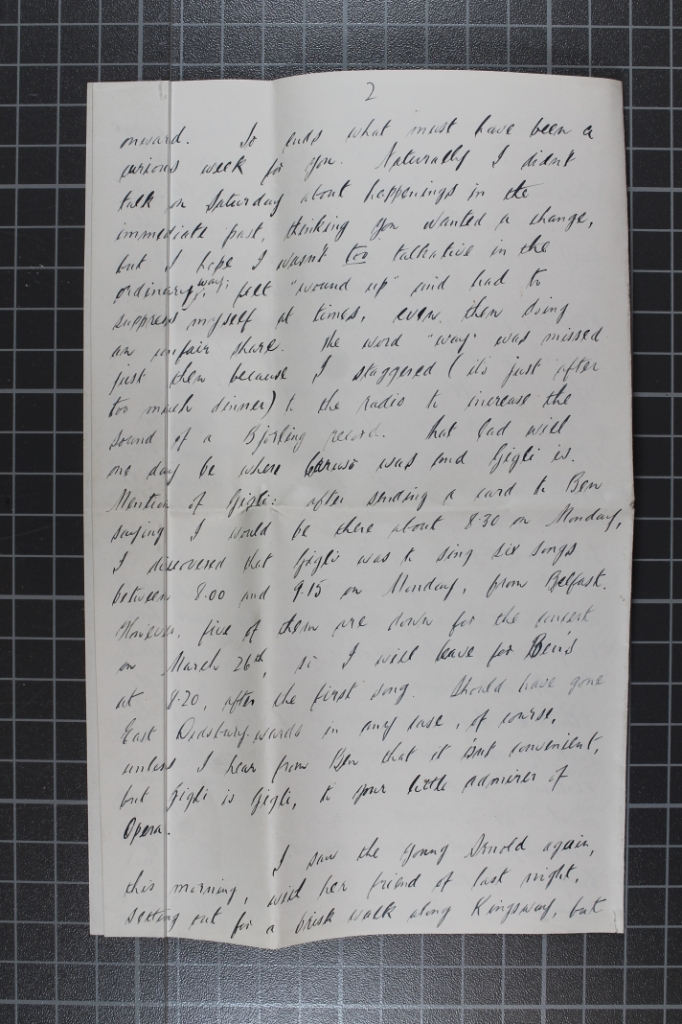 2
onward. So ends what must have been a
curious week for you. Naturally I didn't
talk on Saturday about happenings in the
immediate past, thinking you wanted a change,
but I hope I wasn't too talkative in the
ordinary way; felt "wound up" and had to
suppress myself at times, even then doing
an unfair share. The word "way" was missed
just then because I staggered (it's just after
too much dinner) to the radio to increase the
sound of a Bjorling record. That lad will
one day be where Caruso was and Gigli is.
Mention of Gigli: after sending a card to Ben
saying I would be there about 8.30 on Monday,
I discovered that Gigli was to sing six songs
between 8.00 and 9.15 on Monday, from Belfast.
However, five of them are down for the concert
on March 26th, so I will leave for Ben's
at 8.20, after the first song. Should have gone
East Didsbury-wards in any case, of course,
unless I hear from Ben that it isn't convenient,
but Gigli is Gigli, to your little admirer of
Opera.
I saw the young Arnold again,
this morning, with her friend of last night,
setting out for a brisk walk along Kingsway, but